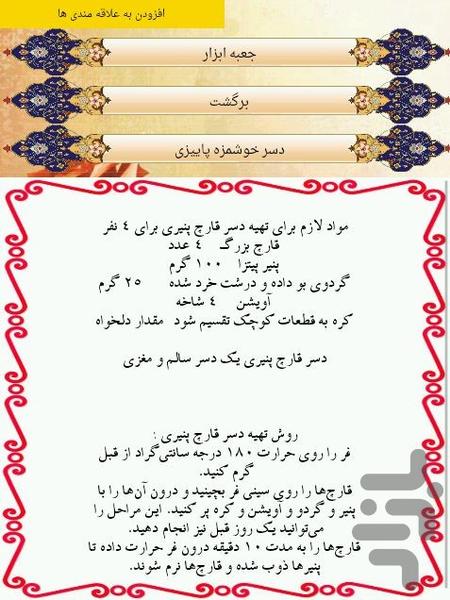 افزودن به علاقه مندی ها
جعبه ابزار
برگشت
دسر خوشمزه پاییزی
مواد لازم برای تهیه دسر قارچ پنیری برای ۴ نفر
قارچ بزرگ ۴ عدد
پنیر پیتزا ۱۰۰ گرم
گردوی بو داده و درشت خرد شده ۲۵ گرم
آویشن ۴ شاخه
کره به قطعات کوچک تقسیم شود مقدار دلخواه
دسر قارچ پنیری یک دسر سالم و مغزی
روش تهیه دسر قارچ پنیری :
فر را روی حرارت ۱۸۰ درجه سانتی‌گراد از قبل
گرم کنید.
قارچ‌ها را روی سینی فر بچینید و درون آن‌ها را با
پنیر و گردو و آویشن و کره پر کنید. این مراحل را
می‌توانید یک روز قبل نیز انجام دهید.
قارچ‌ها را به مدت ۱۰ دقیقه درون فر حرارت داده تا
پنیرها ذوب شده و قارچ‌ها نرم شوند.
بازار